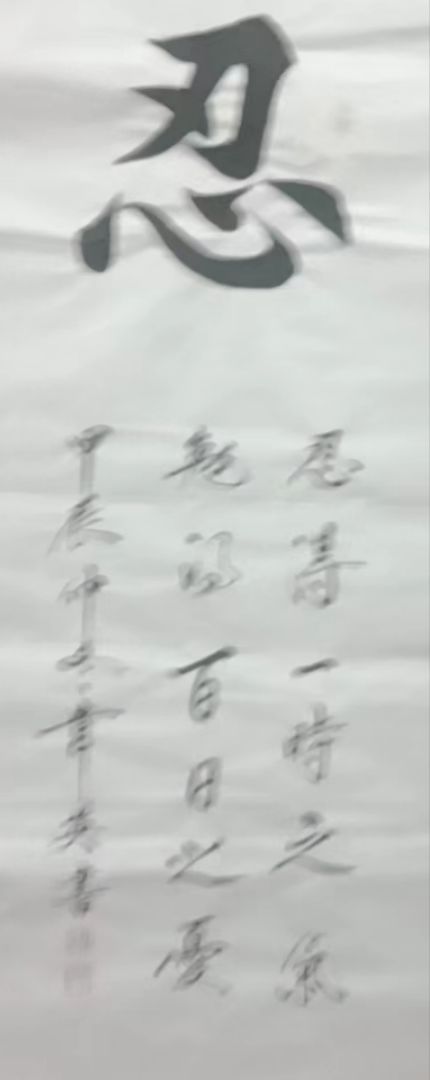 忍
忍一時之氣
得百日之憂
甲辰仲冬章英書